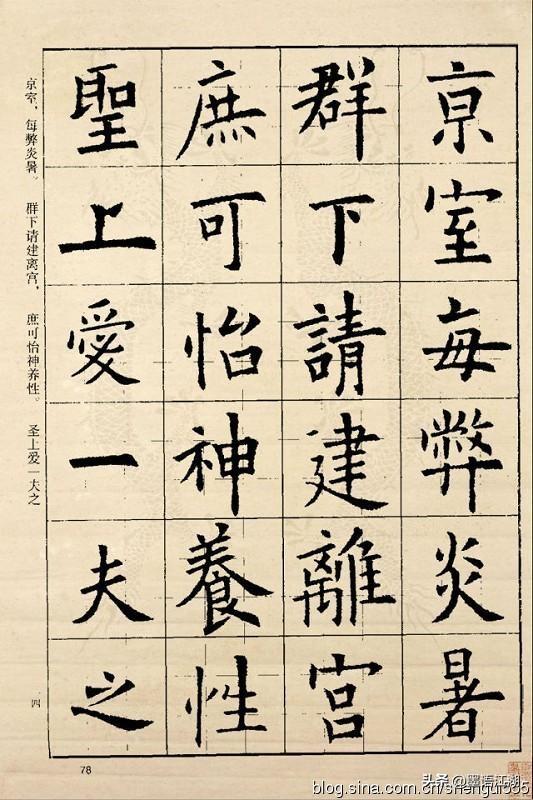 京室每弊炎暑
群下請建離宮
庶可怡神養性
聖上愛一夫之
京室，每弊炎暑。 群下请建离宫， 庶可怡神养性。 圣上爱一夫之
四
78
头条 @墨语江湖
blog.sina.com.cn/shengui555